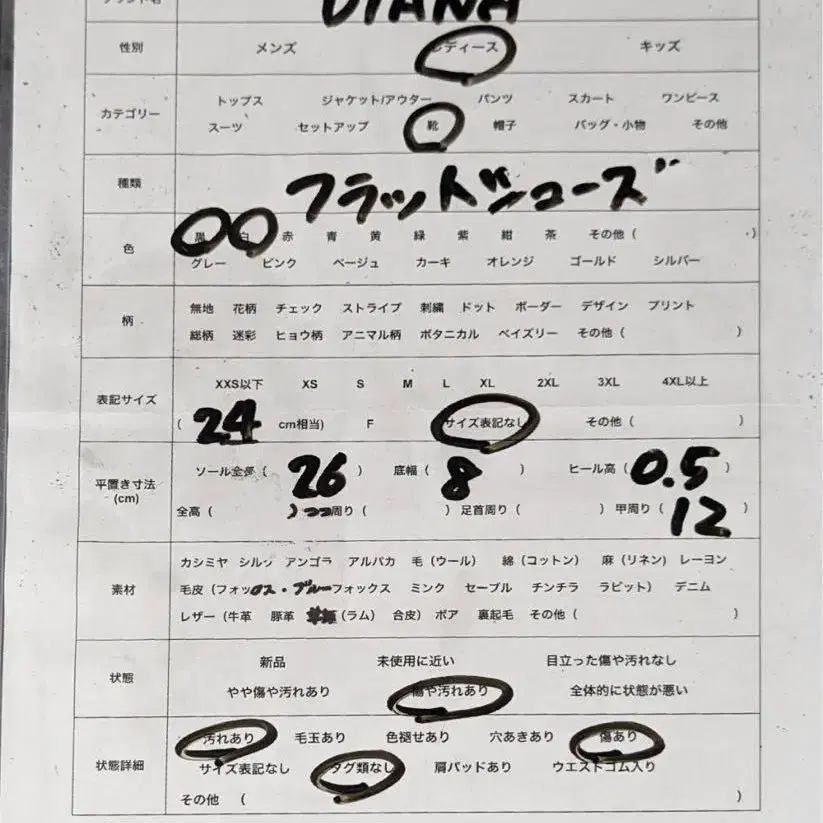 ブランド名 DIANA
性別 メンズ レディース キッズ
カテゴリー トップス ジャケット/アウター パンツ スカート ワンピース
スーツ セットアップ 靴 帽子 バッグ・小物 その他
種類 フラットシューズ
色 黒 白 赤 青 黄 緑 紫 紺 茶 その他( )
グレー ピンク ベージュ カーキ オレンジ ゴールド シルバー
柄 無地 花柄 チェック ストライプ 刺繍 ドット ボーダー デザイン プリント
総柄 迷彩 ヒョウ柄 アニマル柄 ボタニカル ペイズリー その他( )
表記サイズ XXS以下 XS S M L XL 2XL 3XL 4XL以上
( 24 cm相当) F サイズ表記なし その他( )
平置き寸法(cm) ソール全長( 26 ) 底幅( 8 ) ヒール高( 0.5 )
全高( )つつ周り( )足首周り( ) 甲周り( 12 )
素材 カシミヤ シルク アンゴラ アルパカ 毛(ウール) 綿(コットン) 麻(リネン) レーヨン
毛皮(フォックス・ブルーフォックス ミンク セーブル チンチラ ラビット) デニム
レザー(牛革 豚革 (ラム) 合皮) ボア 裏起毛 その他( )
状態 新品 未使用に近い 目立った傷や汚れなし
やや傷や汚れあり 傷や汚れあり 全体的に状態が悪い
状態詳細 汚れあり 毛玉あり 色褪せあり 穴あきあり 傷あり
サイズ表記なし タグ類なし 肩パッドあり ウエストゴム入り
その他 ( )